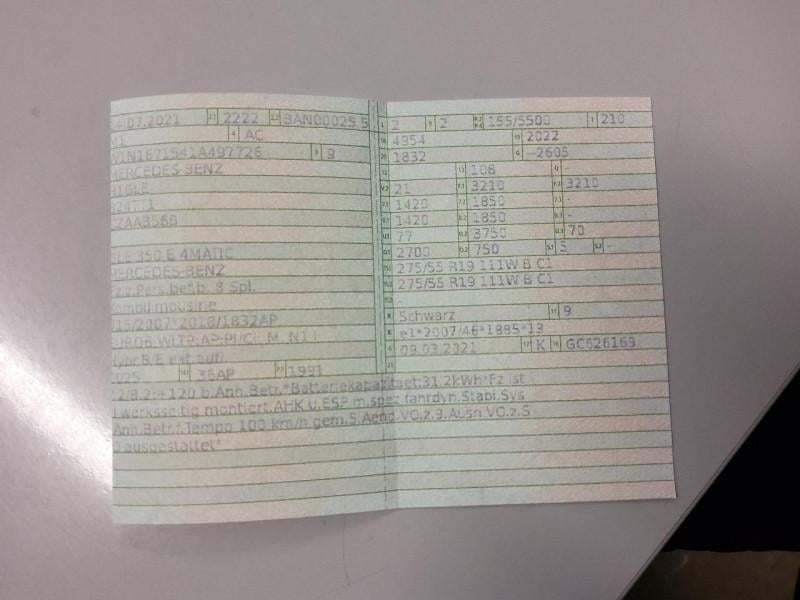 4.07.2021 2.1 2222 2.2 BAN00025 5
M1 4 AC
W1N1671541A497726 3 3
MERCEDES-BENZ
H1GLE
CZAAB56B
GLE 350 E 4MATIC
MERCEDES-BENZ
Fz.z.Pers.bef.b. 8 Spl.
Kombilimousine
715/2007*2018/1832AP
EURO6 WLTP;AP;PI/CI; M, N1 I
Hybr.B/E ext.aufl
0025 14.1 36AP P.1 1991
b.Anh.Betr.*Batteriekapazitaet:31.2kWh*Fz ist
werksseitig montiert.AHK u.ESP m.spez.fahrdyn.Stabi.Sys
Anh.Betr.f.Tempo 100 km/h gem.5.Aend.VO.z.9.Ausn.VO.z.S
ausgestattet*
L 2 9 2 P.2 P.4 155/5500 T 210
18 4954 19 2022
20 1832 G -2605
12 - 13 108 Q -
V.7 21 F.1 3210 F.2 3210
7.1 1420 7.2 1850 7.3 -
8.1 1420 8.2 1850 8.3 -
U.1 77 U.2 3750 U.3 70
O.1 2700 O.2 750 S.1 5 S.2 -
15.1 275/55 R19 111W B C1
15.2 275/55 R19 111W B C1
15.3 -
R Schwarz 11 9
K e1*2007/46*1885*13
6 09.03.2021 17 K 16 GC626169
21